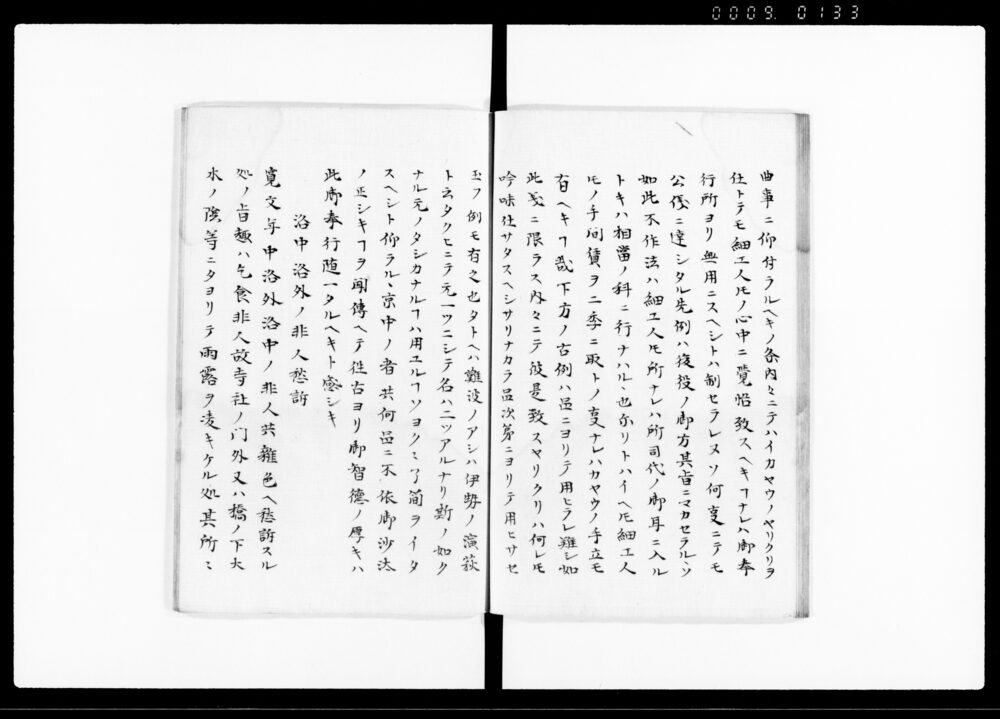 0009. 0133
曲事ニ仰付ラルヘキノ条内々ニテハイカヤウノヤリクリヲ
仕トテモ細工人𪜈ノ心中ニ覚悟致スヘキヿナレハ御奉
行所ヨリ無用ニスヘシトハ制セラレヌソ何事ニテモ
公儀ニ達シタル先例ハ後役ノ御方其旨ニマカセラルヽソ
如此不作法ハ細工人𪜈所ナレハ所司代ノ御耳ニ入ル
トキハ相當ノ科ニ行ナハルヽ也尓リトハイヘ𪜈細工人
𪜈ノ手間賃ヲ二季ニ取トノ事ナレハカヤウノ手立モ
有ヘキヿ哉下方ノ古例ハ品ニヨリテ用ヒラレ難シ如
此義ニ限ラス内々ニテ彼是致スヤリクリハ何レ𪜈
吟味仕サタスヘシサリナカラ品次第ニヨリテ用ヒサセ
玉フ例モ有之也タトヘハ難波ノアシハ伊勢ノ濱荻
ト云タクヒニテ元一ツニシテ名ハ二ツアルナリ斯ノ如ク
ナル元ノタシカナルヿハ用ユルヿソヨクヽ了簡ヲイタ
スヘシト仰ラルヽ京中ノ者共何品ニ不依御沙汰
ノ正シキヿヲ聞傳ヘテ往古ヨリ御智徳ノ厚キハ
此御奉行随一タルヘキト感シキ
洛中洛外ノ非人愁訴
寛文年中洛外洛中ノ非人共雑色ヘ愁訴スル
処ノ旨趣ハ乞食非人故寺社ノ門外又ハ橋ノ下大
木ノ陰等ニタヨリテ雨露ヲ凌キケル処其所ニ